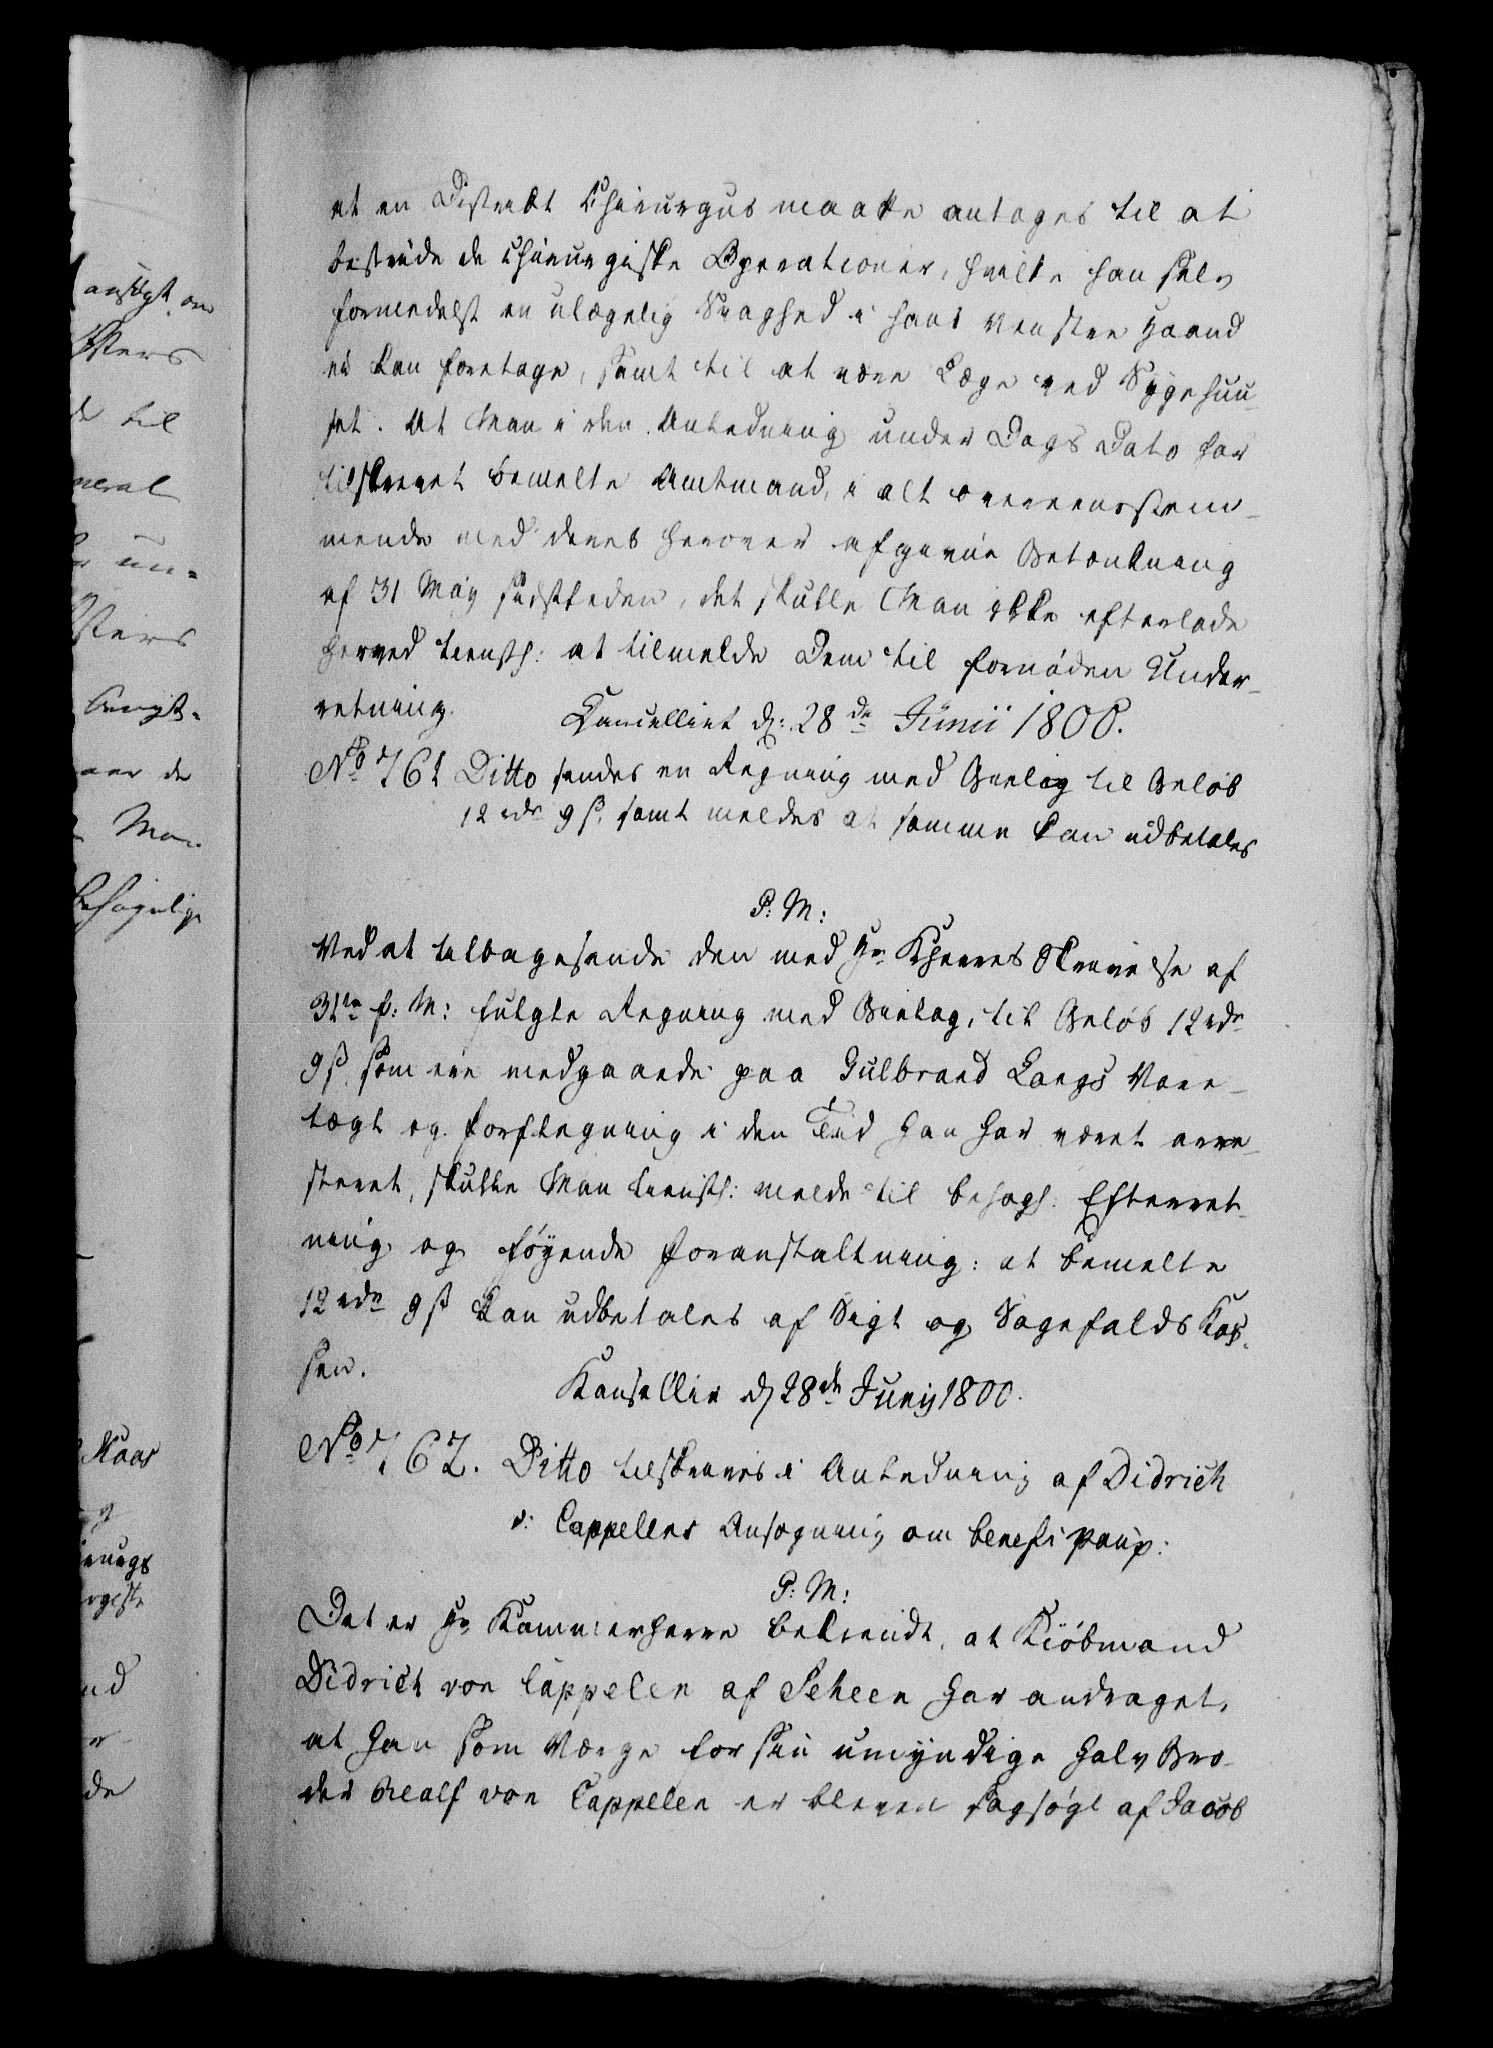 ansøgt om
til
neral
un=
aar de
Man
behagelig
Kaas
at en District Chirurgus maatte antages til at
bestride de chirurgiske Operationer, hvilke han selv
formedelst en ulægelig Svaghed i hans venstre Haand
ei kan foretage, samt til at være Læge ved Sygehuu-
set. At Man i den Anledning under Dags Dato har
tilskrevet bemelte Amtmand, i alt overeensstem-
mende med deres herover afgivne Betænkning
af 31 May sidstleden, det skulle Man ikke efterlade
herved tienstl: at tilmelde Dem til fornøden Under-
retning.
Cancelliet d: 28de Junii 1800.
No 761 Ditto sendes en Regning med Bielag til Beløb
12 rdr 9 ß, samt meldes at samme kan udbetales
P: M:
Ved at tilbagesende den med Hr Kherres Skrivelse af
31te f: M: fulgte Regning med Bielag, til Beløb 12 rdr
9 ß, som ere medgaaede paa Gulbrand Langs Vare-
tægt og Forflegning i den Tid han har været arre-
steret, skulle Man tienstl: melde til behagl: Efterret-
ning og føyende Foranstaltning: at bemelte
12 rdr 9 ß kan udbetales af Sigt og Sagefalds Kas-
sen.
Kanselliet d 28de Junij 1800.
No 762. Ditto tilskrives i Anledning af Didrich
v: Cappelens Ansøgning om benefi paup:
P: M:
Det er Hr Kammerherre bekiendt, at Kiøbmand
Didrich von Cappelen af Scheen har andraget,
at han som Værge for sin umyndige Halv Bro-
der Realf von Cappelen er bleven sagsøgt af Jacob